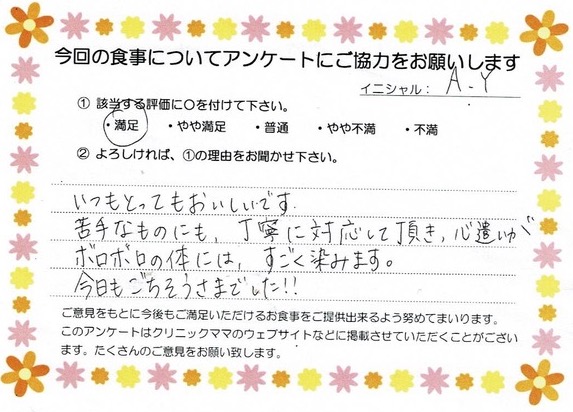 今回の食事についてアンケートにご協力をお願いします
イニシャル： A.Y
① 該当する評価に○を付けて下さい。
・満足 ・やや満足 ・普通 ・やや不満 ・不満
② よろしければ、①の理由をお聞かせ下さい。
いつもとってもおいしいです.
苦手なものにも, 丁寧に対応して頂き, 心遣いが
ボロボロの体には, すごく染みます。
今日もごちそうさまでした!!
ご意見をもとに今後もご満足いただけるお食事をご提供出来るよう努めてまいります。
このアンケートはクリニックママのウェブサイトなどに掲載させていただくことがござい
ます。たくさんのご意見をお願い致します。